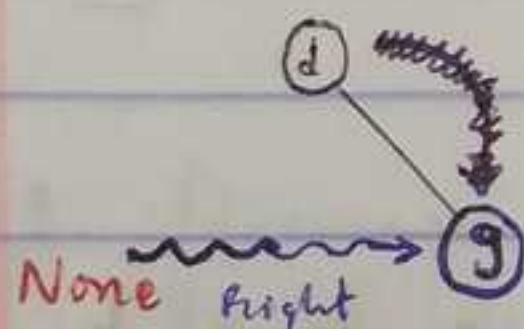 d
g
None Right